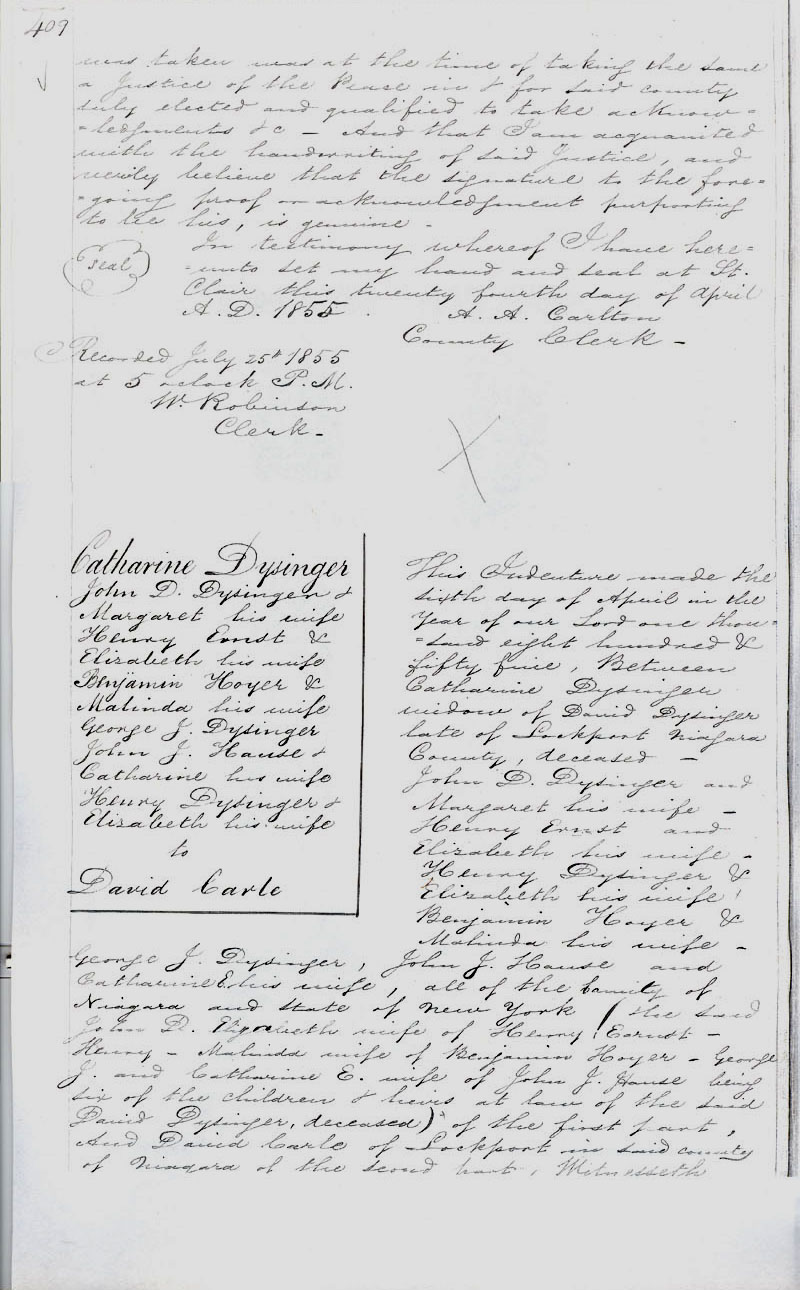 409
was taken was at the time of taking the same
a Justice of the Peace in & for said county
duly elected and qualified to take acknow=
=ledgments &c — And that I am acquainted
with the handwriting of said Justice, and
verily believe that the signature to the fore=
=going proof or acknowledgment purporting
to be his, is genuine -
In testimony whereof I have here=
(seal)
=unto set my hand and seal at St.
Clair this twenty fourth day of April
A. D. 1855.
A. A. Carlton
County Clerk -
Recorded July 25th 1855
at 5 oclock P.M.
W. Robinson
Clerk -
X
Catharine Dysinger
John D. Dysinger &
Margaret his wife
Henry Ernst &
Elizabeth his wife
Benjamin Hoyer &
Malinda his wife
George J. Dysinger
John J. Hause &
Catharine his wife
Henry Dysinger &
Elizabeth his wife
to
David Carle
This Indenture made the
sixth day of April in the
Year of our Lord one thou=
=sand eight hundred &
fifty five, Between
Catharine Dysinger
widow of David Dysinger
late of Lockport Niagara
County, deceased —
John D. Dysinger and
Margaret his wife —
Henry Ernst and
Elizabeth his wife -
Henry Dysinger &
Elizabeth his wife
Benjamin Hoyer &
Malinda his wife -
George J. Dysinger, John J. Hause and
Catharine E. his wife, all of the County of
Niagara and State of New York (the said
John D. Elizabeth wife of Henry Earnst -
Henry - Malinda wife of Benjamin Hoyer - George
J. and Catharine E. wife of John J. Hause being
six of the children & heirs at law of the said
David Dysinger, deceased) of the first part,
And David Carle of Lockport in said county
of Niagara of the second part, Witnesseth